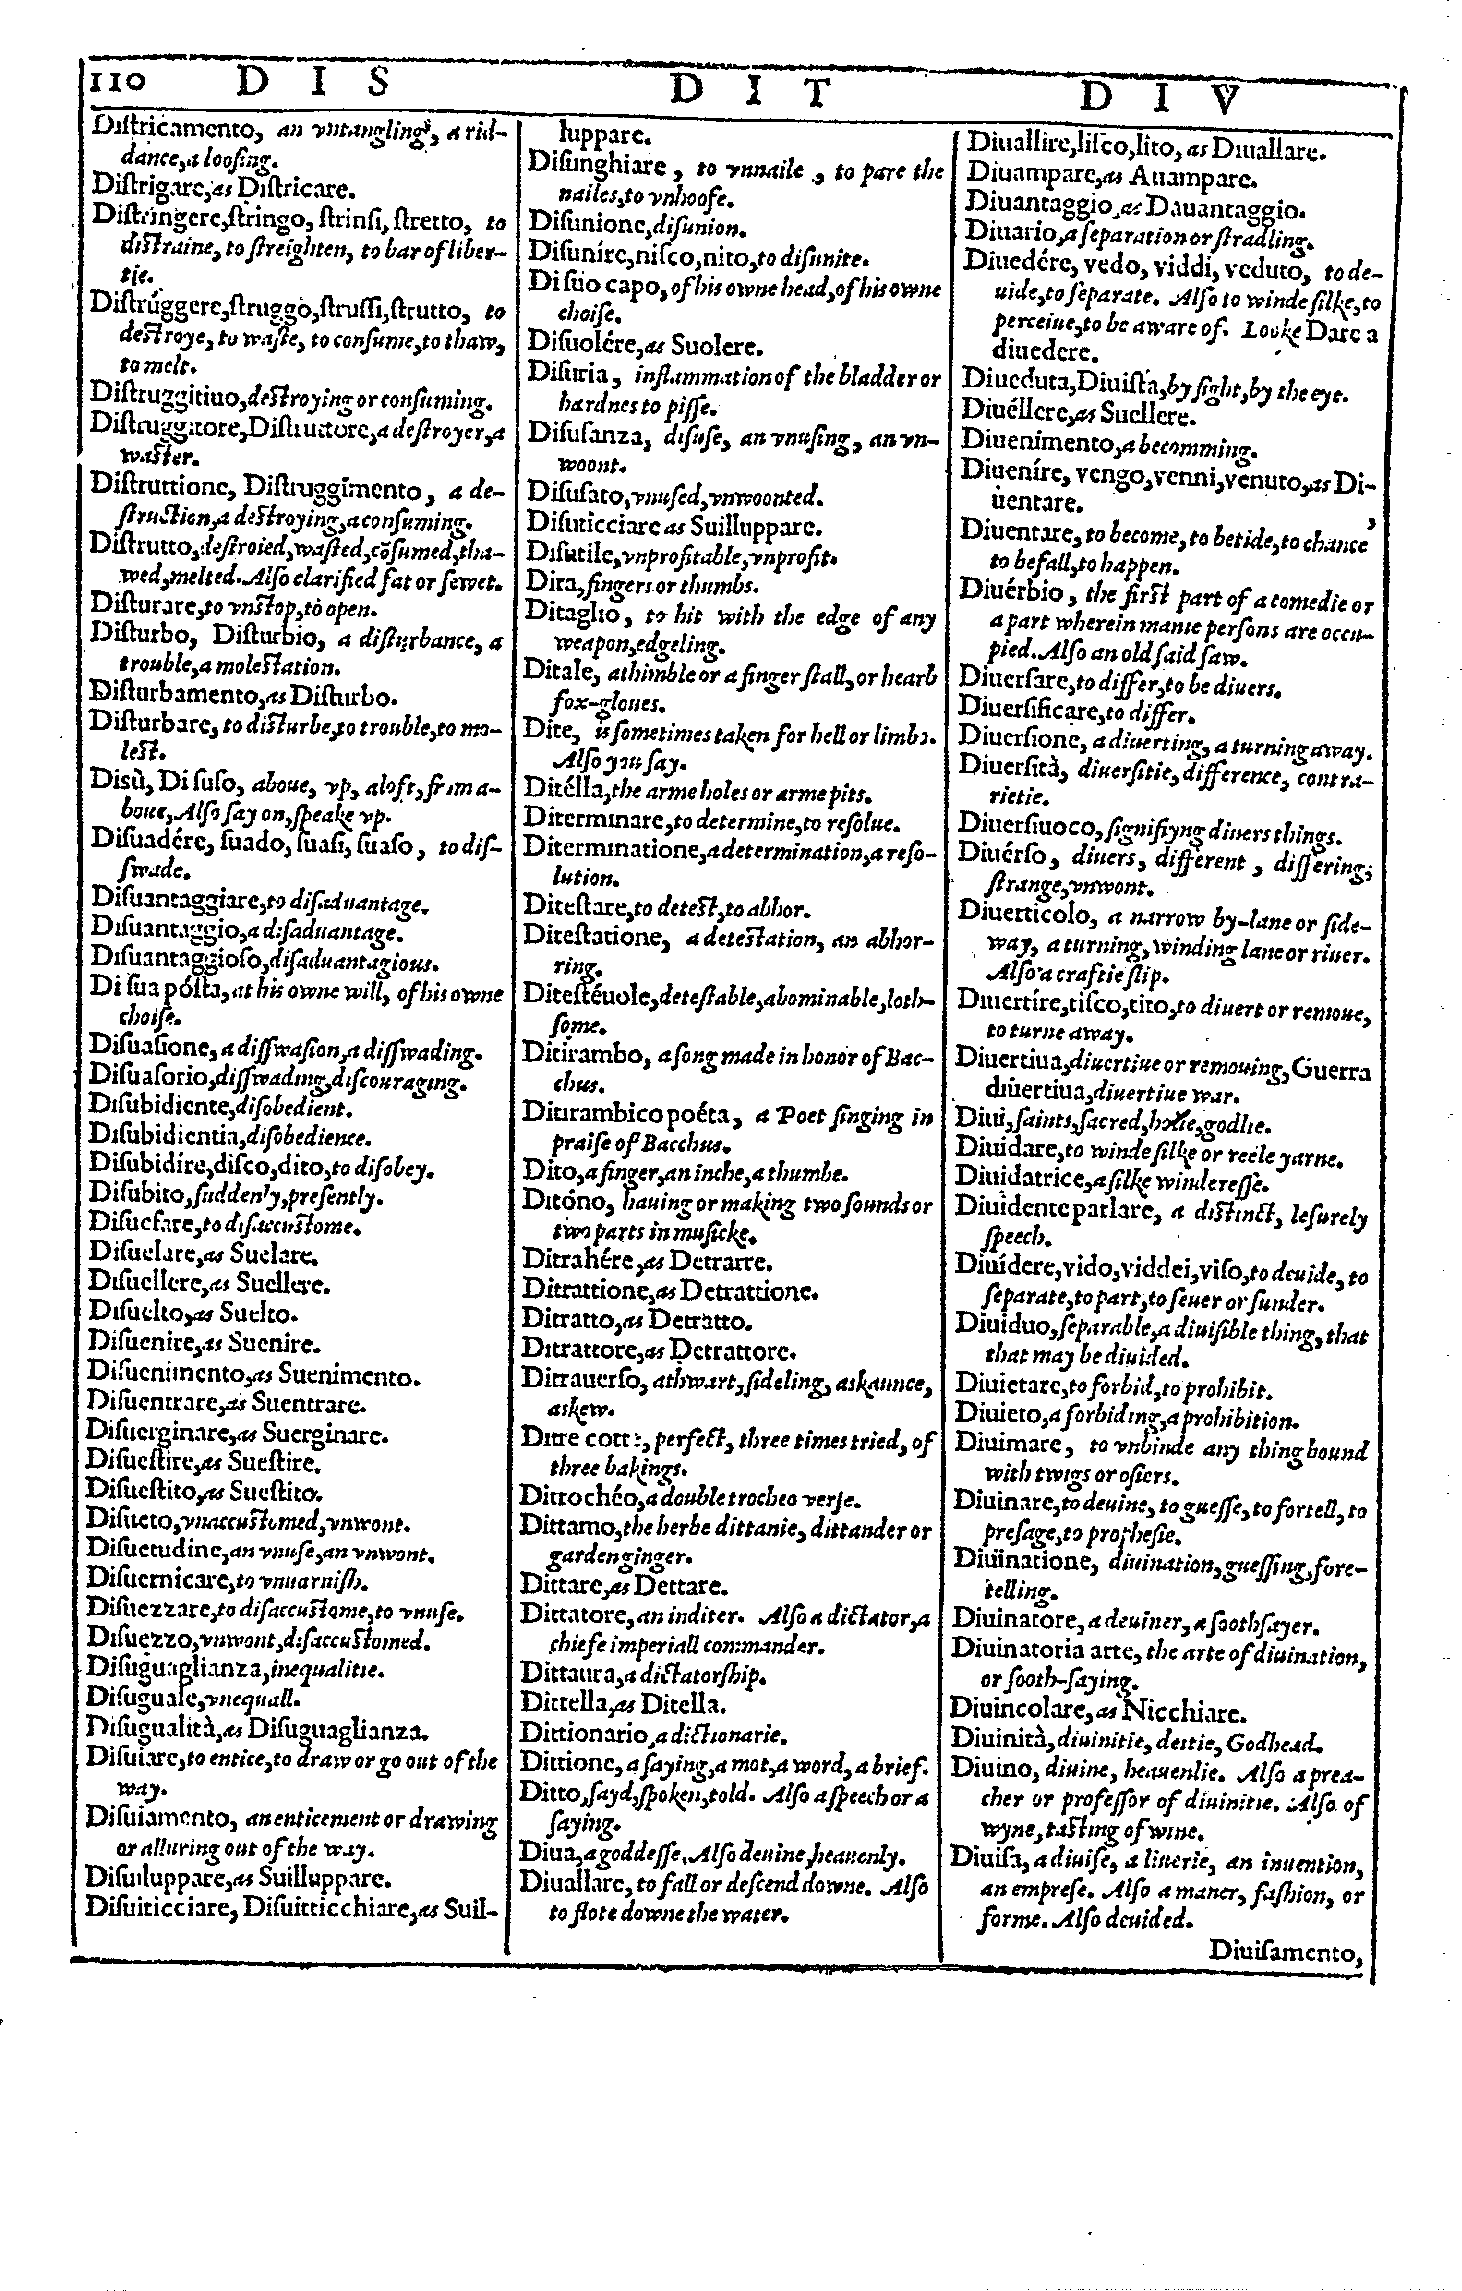 110 D I S D I T D I V
Diſtricamento, an vntangling, a rid-
dance, a looſing.
Diſtrigare, as Diſtricare.
Diſtríngere, ſtringo, ſtrinſi, ſtretto, to
diſtraine, to ſtreighten, to bar of liber-
tie.
Diſtrúggere, ſtruggo, ſtruſſi, ſtrutto, to
deſtroye, to waſte, to conſume, to thaw,
to melt.
Diſtruggitiuo, deſtroying or conſuming.
Diſtruggitore, Diſtruttore, a deſtroyer, a
waſter.
Diſtruttione, Diſtruggimento, a de-
ſtruction, a deſtroying, a conſuming.
Diſtrutto, deſtroied, waſted, cõſumed, tha-
wed, melted. Alſo clarified fat or ſewet.
Diſturare, to vnſtop, to open.
Diſturbo, Diſturbio, a diſturbance, a
trouble, a moleſtation.
Diſturbamento, as Diſturbo.
Diſturbare, to diſturbe, to trouble, to mo-
leſt.
Disù, Di ſuſo, aboue, vp, aloft, from a-
boue, Alſo ſay on, ſpeake vp.
Diſuadére, ſuado, ſuaſi, ſuaſo, to diſ-
ſwade.
Diſuantaggiare, to diſaduantage.
Diſuantaggio, a diſaduantage.
Diſuantaggioſo, diſaduantagious.
Di ſua póſta, at his owne will, of his owne
choiſe.
Diſuaſione, a diſſwaſion, a diſſwading.
Diſuaſorio, diſſwading, diſcouraging.
Diſubidiente, diſobedient.
Diſubidientia, diſobedience.
Diſubidíre, diſco, dito, to diſobey.
Diſubito, ſuddenly, preſently.
Diſuefare, to diſaccuſtome.
Diſuelare, as Suelare.
Diſuellere, as Suellere.
Diſuelto, as Suelto.
Diſuenire, as Suenire.
Diſuenimento, as Suenimento.
Diſuentrare, as Suentrare.
Diſuerginare, as Suerginare.
Diſueſtire, as Sueſtire.
Diſueſtito, as Sueſtito.
Diſueto, vnaccuſtomed, vnwont.
Diſuetudine, an vnuſe, an vnwont.
Diſuernicare, to vnuarniſh.
Diſuezzare, to diſaccuſtome, to vnuſe.
Diſuezzo, vnwont, diſaccuſtomed.
Diſuguaglianza, inequalitie.
Diſuguale, vnequall.
Diſugualità, as Diſuguaglianza.
Diſuiare, to entice, to draw or go out of the
way.
Diſuiamento, an enticement or drawing
or alluring out of the way.
Diſuiluppare, as Suilluppare.
Diſuiticciare, Diſuitticchiare, as Suil-
luppare.
Diſunghiare, to vnnaile, to pare the
nailes, to vnhoofe.
Diſunione, diſunion.
Diſuníre, niſco, nito, to diſunite.
Di ſúo capo, of his owne head, of his owne
choiſe.
Diſuolére, as Suolere.
Diſuria, inflammation of the bladder or
hardnes to piſſe.
Diſuſanza, diſuſe, an vnuſing, an vn-
woont.
Diſuſato, vnuſed, vnwoonted.
Diſuticciare as Suilluppare.
Diſutile, vnprofitable, vnprofit.
Dita, fingers or thumbs.
Ditaglio, to hit with the edge of any
weapon, edgeling.
Ditale, a thimble or a finger ſtall, or hearb
fox-gloues.
Dite, is ſometimes taken for hell or limbo.
Alſo you ſay.
Ditélla, the arme holes or arme pits.
Diterminare, to determine, to reſolue.
Diterminatione, a determination, a reſo-
lution.
Diteſtare, to deteſt, to abhor.
Diteſtatione, a deteſtation, an abhor-
ring.
Diteſtéuole, deteſtable, abominable, loth-
ſome.
Ditirambo, a ſong made in honor of Bac-
chus.
Ditirambico poéta, a Poet ſinging in
praiſe of Bacchus.
Dito, a finger, an inche, a thumbe.
Ditóno, hauing or making two ſounds or
two parts in muſicke.
Ditrahére, as Detrarre.
Ditrattione, as Detrattione.
Ditratto, as Detratto.
Ditrattore, as Detrattore.
Ditrauerſo, athwart, ſideling, askaunce,
askew.
Ditre cotte, perfect, three times tried, of
three bakings.
Ditrochéo, a double trocheo verſe.
Dittamo, the herbe dittanie, dittander or
garden ginger.
Dittare, as Dettare.
Dittatore, an inditer. Alſo a dictator, a
chiefe imperiall commander.
Dittatura, a dictatorſhip.
Dittella, as Ditella.
Dittionario, a dictionarie.
Dittione, a ſaying, a mot, a word, a brief.
Ditto, ſayd, ſpoken, told. Alſo a ſpeech or a
ſaying.
Diua, a goddeſſe. Alſo deuine, heauenly.
Diuallare, to fall or deſcend downe. Alſo
to flote downe the water.
Diuallire, liſco, lito, as Diuallare.
Diuampare, as Auampare.
Diuantaggio, as Dauantaggio.
Diuario, a ſeparation or ſtradling.
Diuedére, vedo, viddi, veduto, to de-
uide, to ſeparate. Alſo to winde ſilke, to
perceiue, to be aware of. Looke Dare a
diuedere.
Diueduta, Diuiſta, by ſight, by the eye.
Diuéllere, as Suellere.
Diuenimento, a becomming.
Diueníre, vengo, venni, venuto, as Di-
uentare.
Diuentare, to become, to betide, to chance
to befall, to happen.
Diuérbio, the firſt part of a comedie or
a part wherein manie perſons are occu-
pied. Alſo an old ſaid ſaw.
Diuerſare, to differ, to be diuers.
Diuerſificare, to differ.
Diuerſione, a diuerting, a turning away.
Diuerſità, diuerſitie, difference, contra-
rietie.
Diuerſiuoco, ſignifiyng diuers things.
Diuérſo, diuers, different, differing,
ſtrange, vnwont.
Diuerticolo, a narrow by-lane or ſide-
way, a turning, winding lane or riuer.
Alſo a craftie ſlip.
Diuertíre, tiſco, tito, to diuert or remoue,
to turne away.
Diuertiua, diuertiue or remouing, Guerra
diuertiua, diuertiue war.
Diui, ſaints, ſacred, holie, godlie.
Diuidare, to winde ſilke or reele yarne.
Diuidatrice, a ſilke wintereſſe.
Diuidente parlare, a diſtinct, leſurely
ſpeech.
Diuídere, vido, viddei, viſo, to deuide, to
ſeparate, to part, to ſeuer or ſunder.
Diuiduo, ſeparable, a diuiſible thing, that
that may be diuided.
Diuietare, to forbid, to prohibit.
Diuieto, a forbiding, a prohibition.
Diuimare, to vnbinde any thing bound
with twigs or oſiers.
Diuinare, to deuine, to gueſſe, to fortell, to
preſage, to propheſie.
Diuinatione, diuination, gueſſing, fore-
telling.
Diuinatore, a deuiner, a ſoothſayer.
Diuinatoria arte, the arte of diuination,
or ſooth-ſaying.
Diuincolare, as Nicchiare.
Diuinità, diuinitie, deitie, Godhead.
Diuino, diuine, heauenlie. Alſo a prea-
cher or profeſſor of diuinitie. Alſo of
wyne, taſting of wine.
Diuiſa, a diuiſe, a liuerie, an inuention,
an empreſe. Alſo a maner, faſhion, or
forme. Alſo deuided.
Diuiſamento,